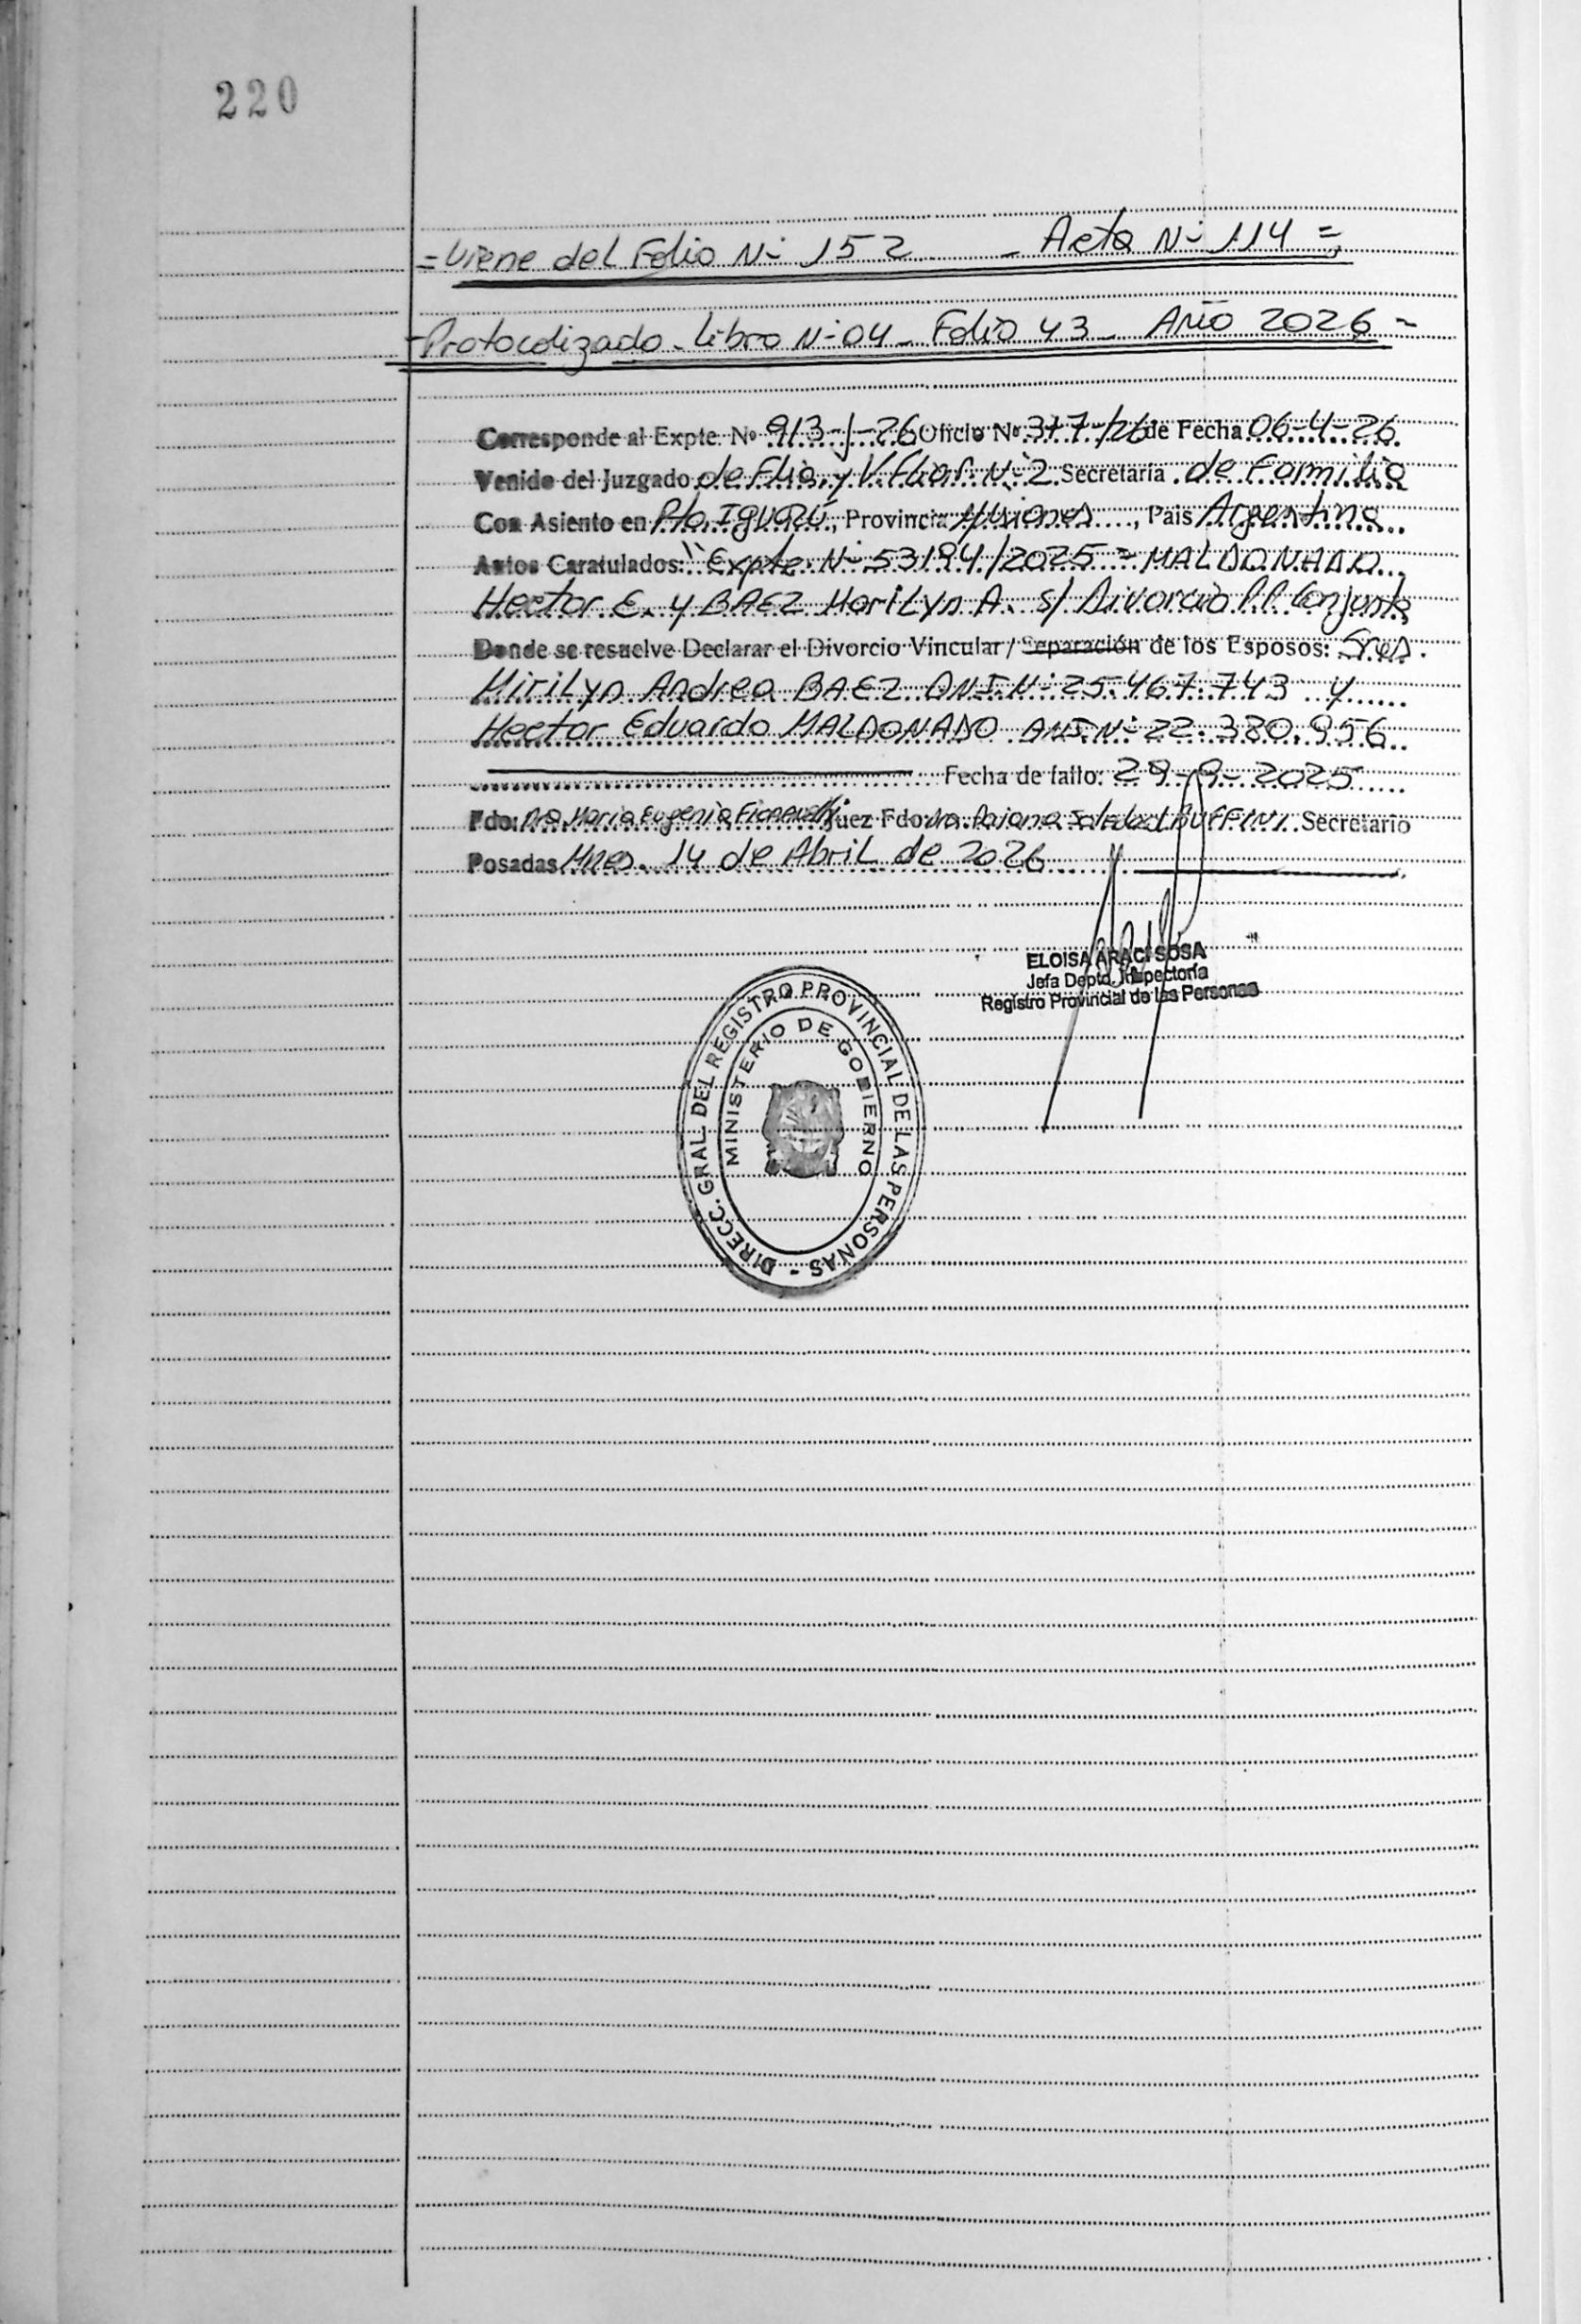 220
= Viene del Folio N- 152 - Acta N- 114 =
- Protocolizado - Libro N- 04 - Folio 43 - Año 2026 =
Corresponde al Expte. Nº 913-J-26 Oficio Nº 377-/26 de Fecha 06-4-26
Venido del Juzgado de Flia. y V. Fliar. N- 2 Secretaria de Familia
Con Asiento en Pto. Iguazú, Provincia Misiones, Pais Argentina
Autos Caratulados: "Expte. N- 53194/2025 = MALDONADO
Hector E. y BAEZ Marilyn A. s/ Divorcio P.P. Conjunta
Donde se resuelve Declarar el Divorcio Vincular / Separación de los Esposos: Sres.
Mirilyn Andrea BAEZ DNI N- 25.467.743 y
Hector Eduardo MALDONADO DNI N- 22.380.956
Fecha de fallo: 29-9-2025
Fdo: Dra Maria Eugenia Juez Fdo: Dra. Soledad Secretario
Posadas Mnes. 14 de Abril de 2026
ELOISA ARACI SOSA
Jefa Depto. Inspectoría
Registro Provincial de las Personas
DIRECC. GRAL. DEL REGISTRO PROVINCIAL DE LAS PERSONAS -
MINISTERIO DE GOBIERNO